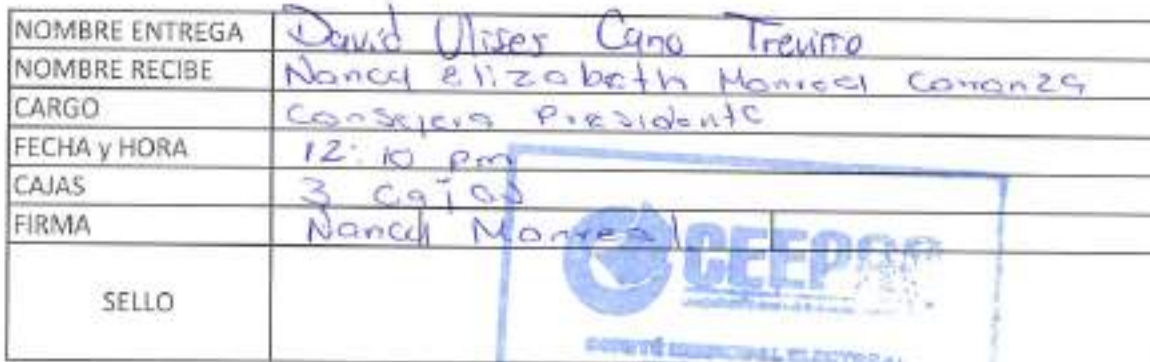 NOMBRE ENTREGA David Ulises Cano Treviño
NOMBRE RECIBE Nancy Elizabeth Monreal Carranza
CARGO Consejera Presidente
FECHA y HORA 12:10 pm
CAJAS 3 cajas
FIRMA Nancy Monreal
SELLO
CEEPAC
COMITÉ MUNICIPAL ELECTORAL